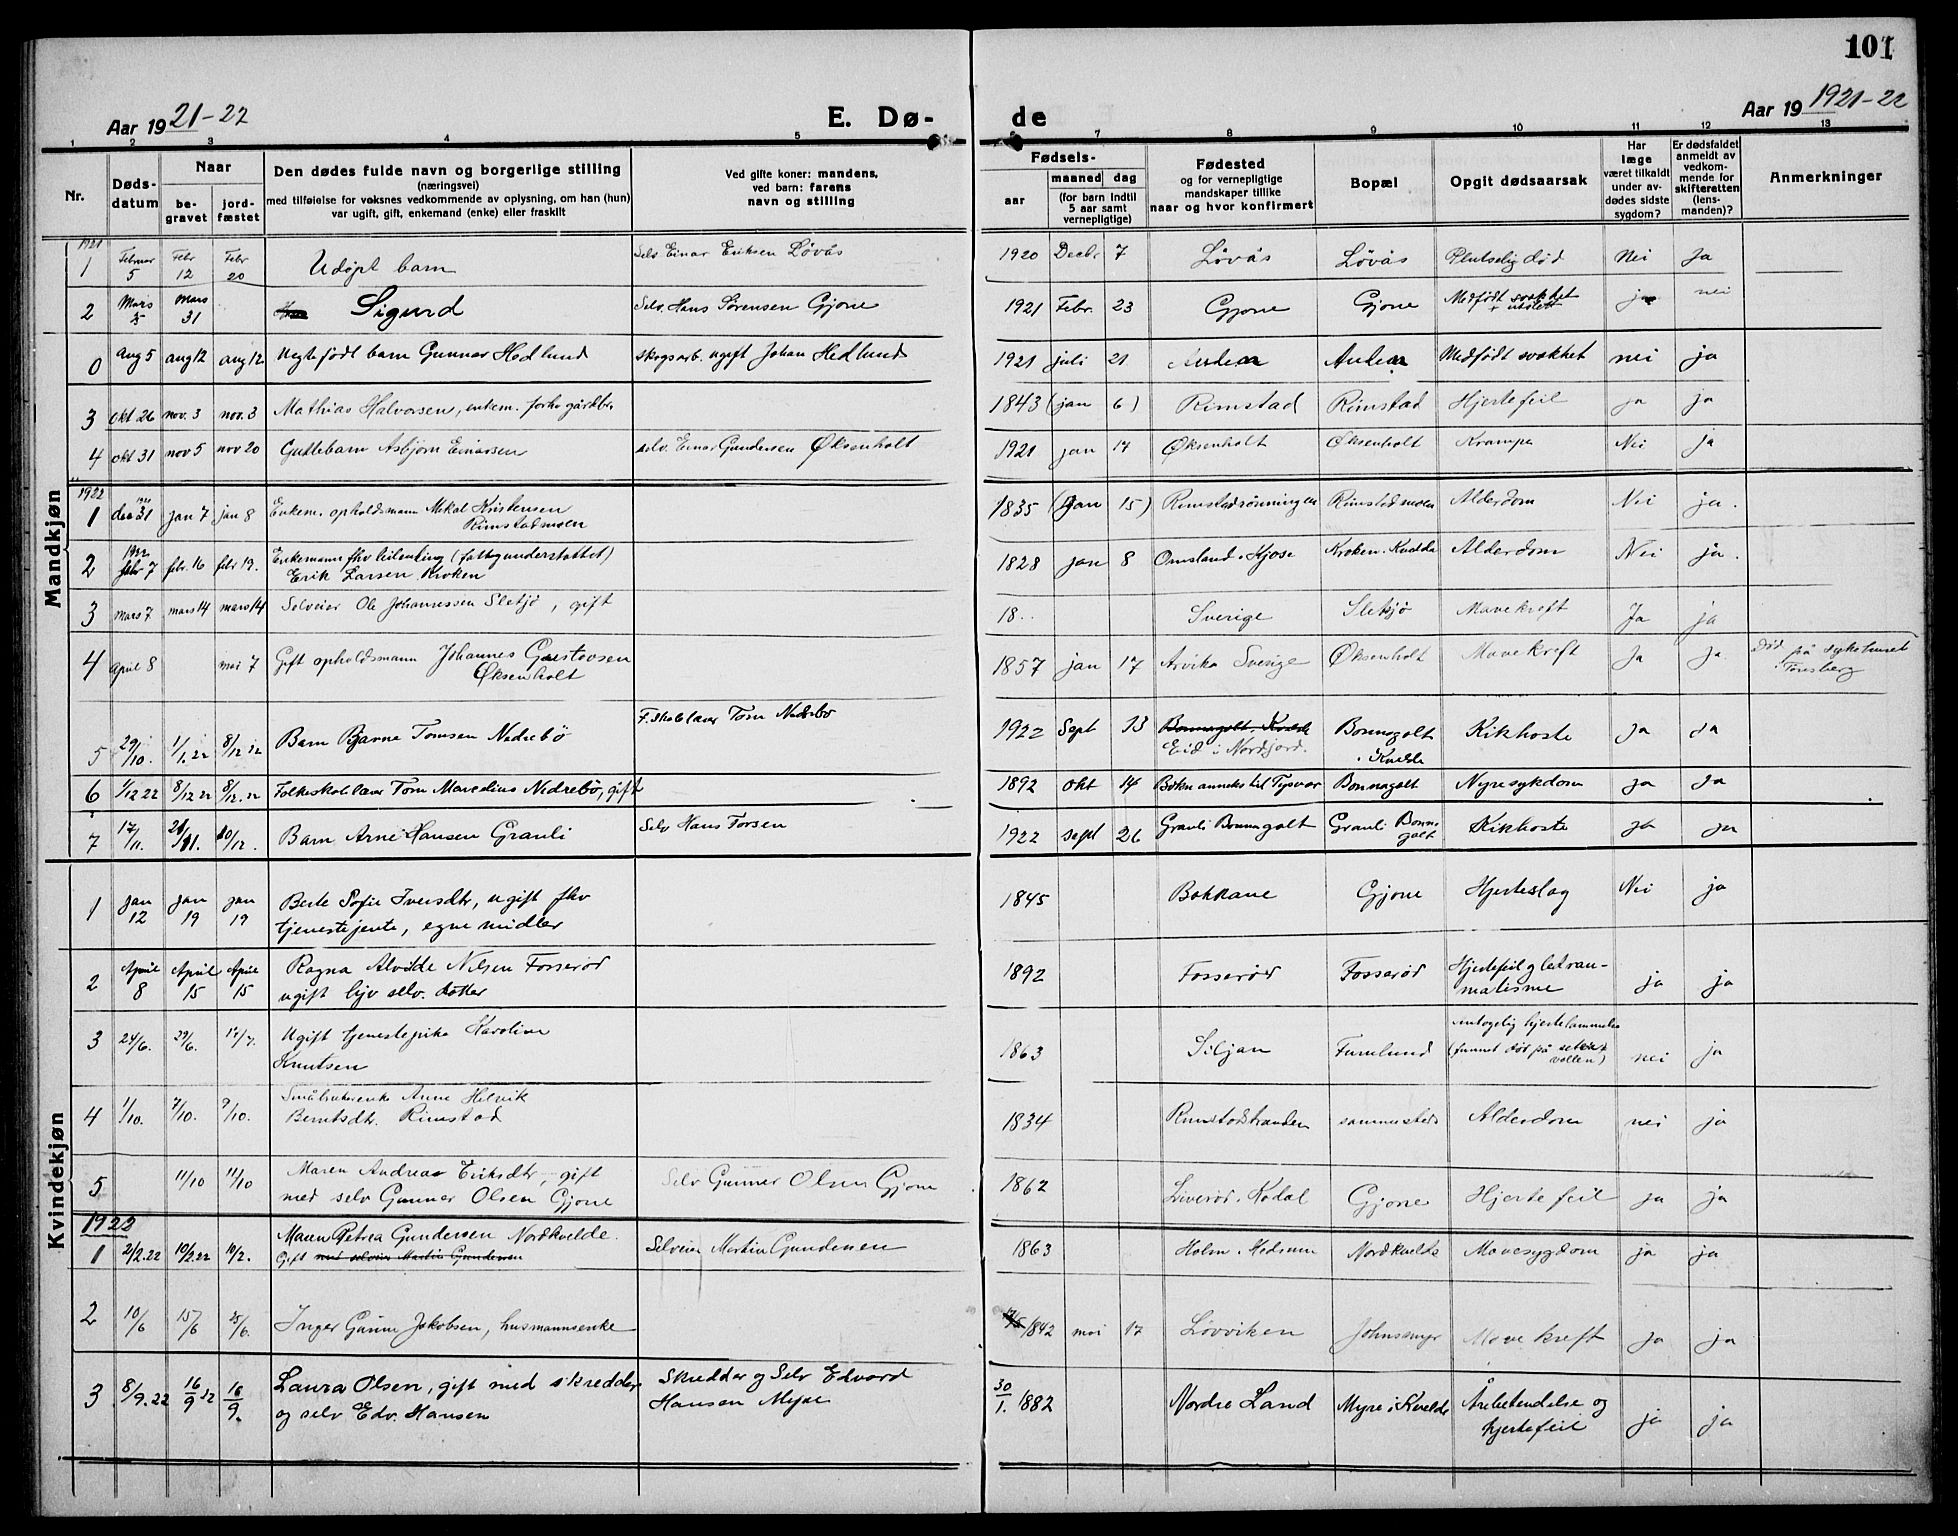 101
Aar 1921-22 E. Dø- de Aar 19 1921-22
1 2 3 4 5 6 7 8 9 10 11 12 13
Nr.
Døds-
datum
Naar
be-
gravet
jord-
fæstet
Den dødes fulde navn og borgerlige stilling
(næringsvei)
med tilføielse for voksnes vedkommende av oplysning, om han (hun)
var ugift, gift, enkemand (enke) eller fraskilt
Ved gifte koner: mandens,
ved barn: farens
navn og stilling
Fødsels-
aar
maaned dag
(for barn indtil
5 aar samt
vernepligtige)
Fødested
og for vernepligtige
mandskaper tillike
naar og hvor konfirmert
Bopæl
Opgit dødsaarsak
Har
læge
været tilkaldt
under av-
dødes sidste
sygdom?
Er dødsfaldet
anmeldt av
vedkom-
mende for
skifteretten
(lens-
manden)?
Anmerkninger
Mandkjøn
1921
1 Februar 5 Febr 12 Febr 20 Udøpt barn Selv. Einar Eriksen Løvås 1920 Decbr 7 Løvås Løvås Plutselig død Nei Ja
2 Mars 5 Mars 31 Sigurd Selv. Hans Sørensen Gjone 1921 Febr. 23 Gjone Gjone Medfødt svakhet ja nei
0 Aug 5 aug 12 aug 12 Uegtefødt barn Gunnar Hedlund skogsarb. ugift Johan Hedlund 1921 juli 21 Medfødt svakhet nei ja
3 okt 26 nov. 3 nov. 3 Mathias Halvorsen, enkem. forhv gårdbr. 1843 (jan 6) Rimstad Rimstad Hjertefeil ja ja
4 okt 31 nov 5 nov 20 Guttebarn Asbjørn Einarsen selv. Einar Gundersen Øksenholt 1921 jan 17 Øksenholt Øksenholt Krampe Nei ja
1922
1 1921 des 31 jan 7 jan 8 Enkem. opholdsmann Mikal Kristensen
Rimstadmoen 1835 (Jan 15) Rimstadrønningen Rimstadmoen Alderdom Nei ja.
2 1922 febr 7 febr. 16 febr 19. Enkemann fhv leilending (fattigunderstøttet)
Erik Larsen Kroken 1828 jan 8 Omsland i Kjose Kroken i Kvelde Alderdom Nei ja.
3 mars 7 mars 14 mars 14 Selveier Ole Johannessen Sletsjø, gift 18.. Sverige Sletsjø Mavekreft Ja ja
4 april 8 mai 7 Gift opholdsmann Johannes Gustavsen
Øksenholt 1857 jan 17 Arvika Sverige Øksenholt Mavekreft Ja Ja Død på sykehuset
i Tønsberg
5 29/10. 1/1.22 8/12 22 Barn Bjarne Tomsen Nedrebø F.skolelærer Tom Nedrebø 1922 Sept 13 Bonnegolt Kvelde
Eid i Nordfjord. Bonnegolt
i Kvelde Kikhoste ja Ja
6 1/12 22 8/12 22 8/12. 22 Folkeskolelærer Tom Marcelius Nedrebø, gift 1892 okt 14 Bokn anneks til Tysvær Bonnegolt Nyresykdom ja Ja
7 17/11. 21/11. 10/12. Barn Arne Hansen Granli Selv Hans Torsen 1922 sept 26 Granli Bonnegolt Granli Bonne-
golt Kikhoste ja ja
Kvindekjøn
1 Jan 12 Jan 19 Jan 19 Berte Sofie Iversdtr, ugift fhv
tjenestejente, egne midler 1845 Bakkane Gjone Hjerteslag Nei ja
2 April 8 April 15 April 15 Ragna Alvilde Nilsen Fosserød
ugift bijv selv. datter 1892 Fosserød Fosserød Hjertefeil g ledrau-
matisme ja ja
3 24/6. 29/6. 17/7. Ugift tjenestepike Karoline
Knutsen 1863 Siljan Furulund antagelig hjertelammelse
(funnet død på seter-
vollen) nei ja
4 1/10. 7/10. 9/10. Småbrukerenke Anne Helvik
Berntsdtr. Rimstad 1834 Rimstadstranden sammesteds Alderdom nei ja
5 11/10 11/10 Maren Andrea Eriksdtr, gift
med selv Gunnar Olsen Gjone Selv Gunnar Olsen Gjone 1862 Liverød i Kodal Gjone Hjertefeil ja ja
1922
1 2/2.22 10/2.22 10/2. Maren Petrea Gundersen Nordkvelde.
Gift med selveier Martin Gundersen Selveier Martin Gundersen 1863 Holm i Hedrum Nordkvelde Mavesygdom ja ja
2 10/6 15/6 25/6. Inger Gurine Jakobsen, husmannsenke 1842 mai 17 Løvviken Johnsmyr Mavekreft ja ja
3 8/9.22 16/9 22 16/9. Laura Olsen, gift med skredder
og selv Edv. Hansen Skredder og Selv Edvard
Hansen Myre 30/1. 1882 Nordre Land Myre i Kvelde Årebetendelse og
hjertefeil ja ja